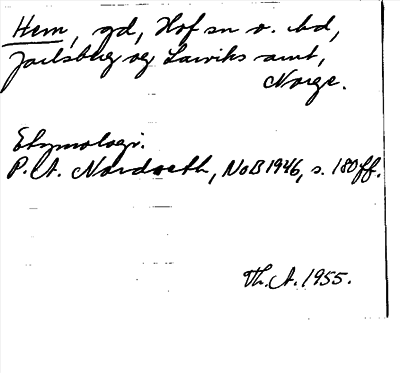 Hem, gd, Hof sn o. hd,
Jarlsberg og Larviks amt,
Norge.
Etymologi.
P. A. Nordseth, NoB 1946, s. 180 ff.
Th. A. 1955.